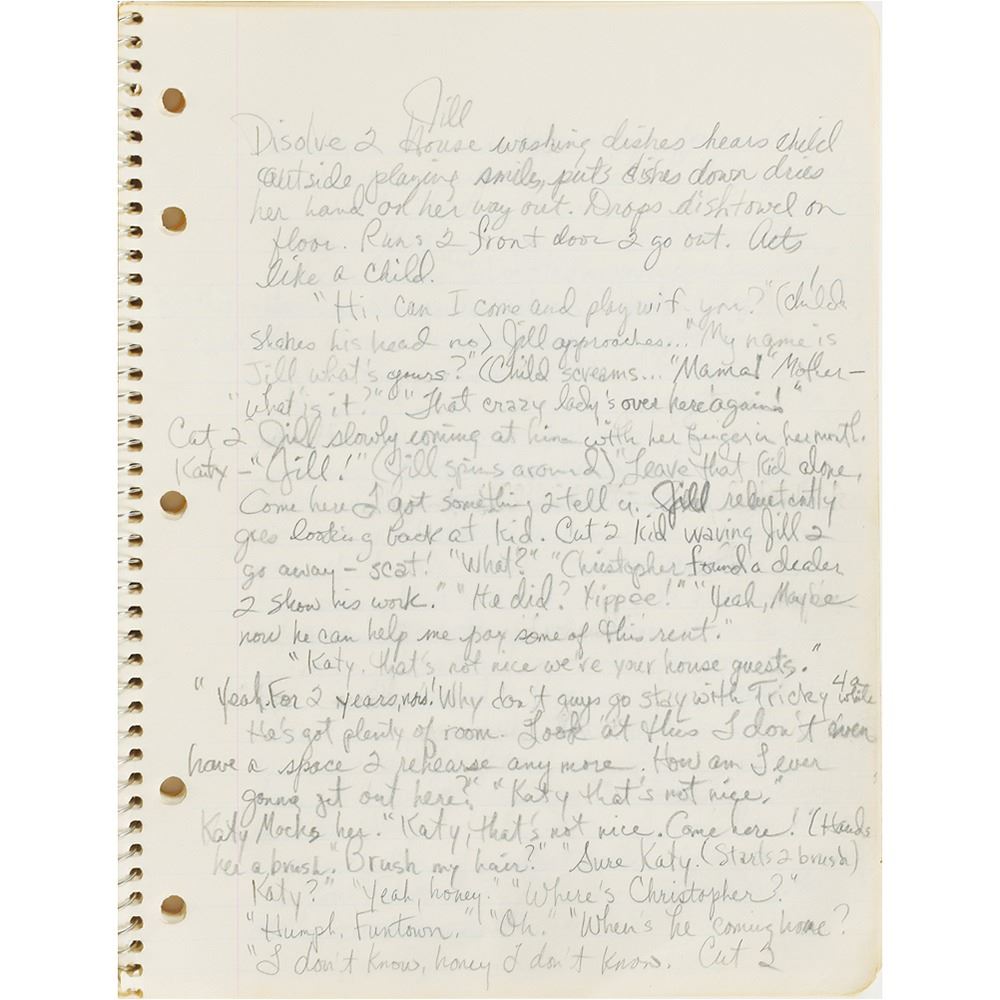 Jill
Disolve 2 House washing dishes hears child
outside playing smiles, puts dishes down dries
her hand on her way out. Drops dishtowel on
floor. Runs 2 front door 2 go out. Acts
like a child.
"Hi, can I come and play wif you?" (child
shakes his head no) Jill approaches... "My name is
Jill what's yours?" (Child screams... "Mama!" Mother—
"what is it?" "That crazy lady's over here again!"
Cut 2 Jill slowly coming at him with her finger in her mouth.
Katy — "Jill!" (Jill spins around) "Leave that kid alone,
Come here I got something 2 tell u. Jill reluctantly
goes looking back at kid. Cut 2 kid waving Jill 2
go away — scat! "What?" "Christopher found a dealer
2 show his work." "He did? Yippee!" "Yeah, Maybe
now he can help me pay some of this rent."
"Katy, that's not nice we're your house guests."
"Yeah. For 2 years, now! Why don't guys go stay with Tricky 4 a while
He's got plenty of room. Look at this I don't even
have a space 2 rehearse anymore. How am I ever
gonna get out here?" "Katy that's not nice."
Katy Mocks her. "Katy, that's not nice. Come here! (Hands
her a brush. "Brush my hair?" "Sure Katy. (Starts 2 brush)
Katy?" "Yeah, honey." "Where's Christopher?"
"Humph. Funtown." "Oh." "When's he coming home?
"I don't know, honey I don't know. Cut 2